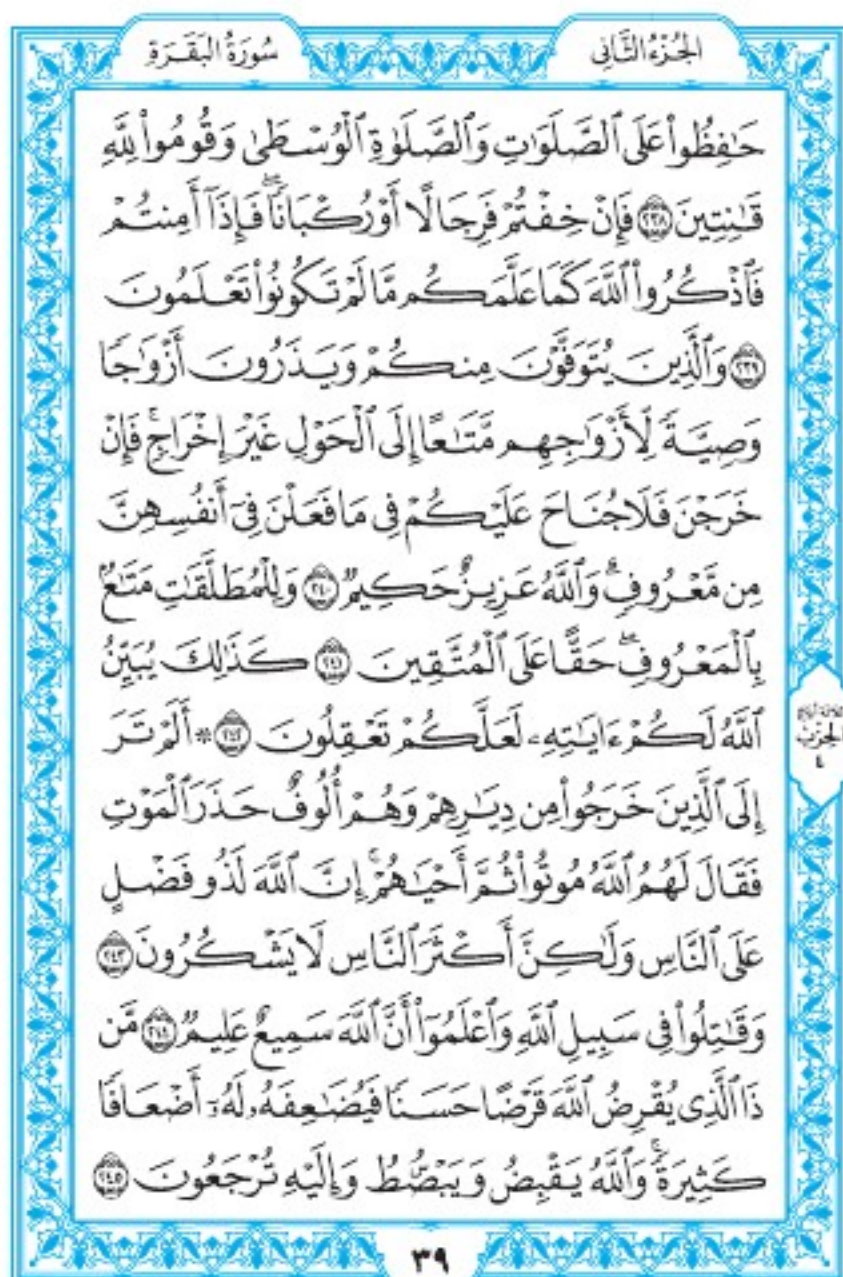 الجُزْءُ الثَّانِي
سُورَةُ البَقَرَةِ
حَـٰفِظُوا۟ عَلَى ٱلصَّلَوَٰتِ وَٱلصَّلَوٰةِ ٱلْوُسْطَىٰ وَقُومُوا۟ لِلَّهِ
قَـٰنِتِينَ ٢٣٨ فَإِنْ خِفْتُمْ فَرِجَالًا أَوْ رُكْبَانًاۖ فَإِذَآ أَمِنتُمْ
فَٱذْكُرُوا۟ ٱللَّهَ كَمَا عَلَّمَكُم مَّا لَمْ تَكُونُوا۟ تَعْلَمُونَ
٢٣٩ وَٱلَّذِينَ يُتَوَفَّوْنَ مِنكُمْ وَيَذَرُونَ أَزْوَٰجًا
وَصِيَّةً لِّأَزْوَٰجِهِم مَّتَـٰعًا إِلَى ٱلْحَوْلِ غَيْرَ إِخْرَاجٍۚ فَإِنْ
خَرَجْنَ فَلَا جُنَاحَ عَلَيْكُمْ فِى مَا فَعَلْنَ فِىٓ أَنفُسِهِنَّ
مِن مَّعْرُوفٍۗ وَٱللَّهُ عَزِيزٌ حَكِيمٌ ٢٤٠ وَلِلْمُطَلَّقَـٰتِ مَتَـٰعٌۢ
بِٱلْمَعْرُوفِۖ حَقًّا عَلَى ٱلْمُتَّقِينَ ٢٤١ كَذَٰلِكَ يُبَيِّنُ
ٱللَّهُ لَكُمْ ءَايَـٰتِهِۦ لَعَلَّكُمْ تَعْقِلُونَ ٢٤٢ * أَلَمْ تَرَ
إِلَى ٱلَّذِينَ خَرَجُوا۟ مِن دِيَـٰرِهِمْ وَهُمْ أُلُوفٌ حَذَرَ ٱلْمَوْتِ
فَقَالَ لَهُمُ ٱللَّهُ مُوتُوا۟ ثُمَّ أَحْيَـٰهُمْۚ إِنَّ ٱللَّهَ لَذُو فَضْلٍ
عَلَى ٱلنَّاسِ وَلَـٰكِنَّ أَكْثَرَ ٱلنَّاسِ لَا يَشْكُرُونَ ٢٤٣
وَقَـٰتِلُوا۟ فِى سَبِيلِ ٱللَّهِ وَٱعْلَمُوٓا۟ أَنَّ ٱللَّهَ سَمِيعٌ عَلِيمٌ ٢٤٤ مَّن
ذَا ٱلَّذِى يُقْرِضُ ٱللَّهَ قَرْضًا حَسَنًا فَيُضَـٰعِفَهُۥ لَهُۥٓ أَضْعَافًا
كَثِيرَةًۚ وَٱللَّهُ يَقْبِضُ وَيَبْصُۜطُ وَإِلَيْهِ تُرْجَعُونَ ٢٤٥
الحِزْب
٤
٣٩